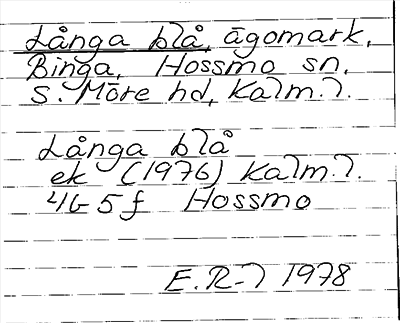 Långa blå, ägomark,
Binga, Hossmo sn,
S. Möre hd, Kalm. l.
Långa blå
ek (1976) Kalm. l.
4G 5f Hossmo
E. R-l 1978